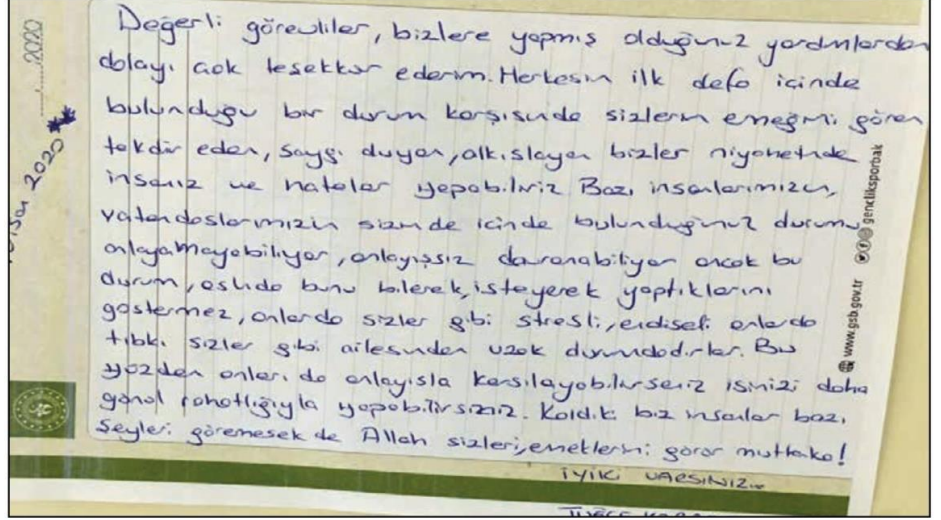 Değerli görevliler, bizlere yapmış olduğunuz yardımlardan
dolayı çok teşekkür ederim. Herkesin ilk defa içinde
bulunduğu bir durum karşısında sizlerin emeğini gören
takdir eden, saygı duyan, alkışlayan bizler nihayetinde
insanız ve hatalar yapabiliriz. Bazı insanlarımızın,
vatandaşlarımızın sizin de içinde bulunduğunuz durumu
anlayamayabiliyor, anlayışsız davranabiliyor ancak bu
durum, aslıda bunu bilerek, isteyerek yaptıklarını
göstermez, onlarda sizler gibi stresli, endişeli onlarda
tıbkı sizler gibi ailesinden uzak durumdadırlar. Bu
yüzden onları da anlayışla karşılayabilirseniz işinizi daha
gönül rahatlığıyla yapabilirsiniz. Kaldık biz insanlar bazı
şeyleri göremesek de Allah sizleri, emeklerini görür mutlaka!
İYİKİ VARSINIZ...
....../2020
2020 **
gencliksporbak
www.gsb.gov.tr